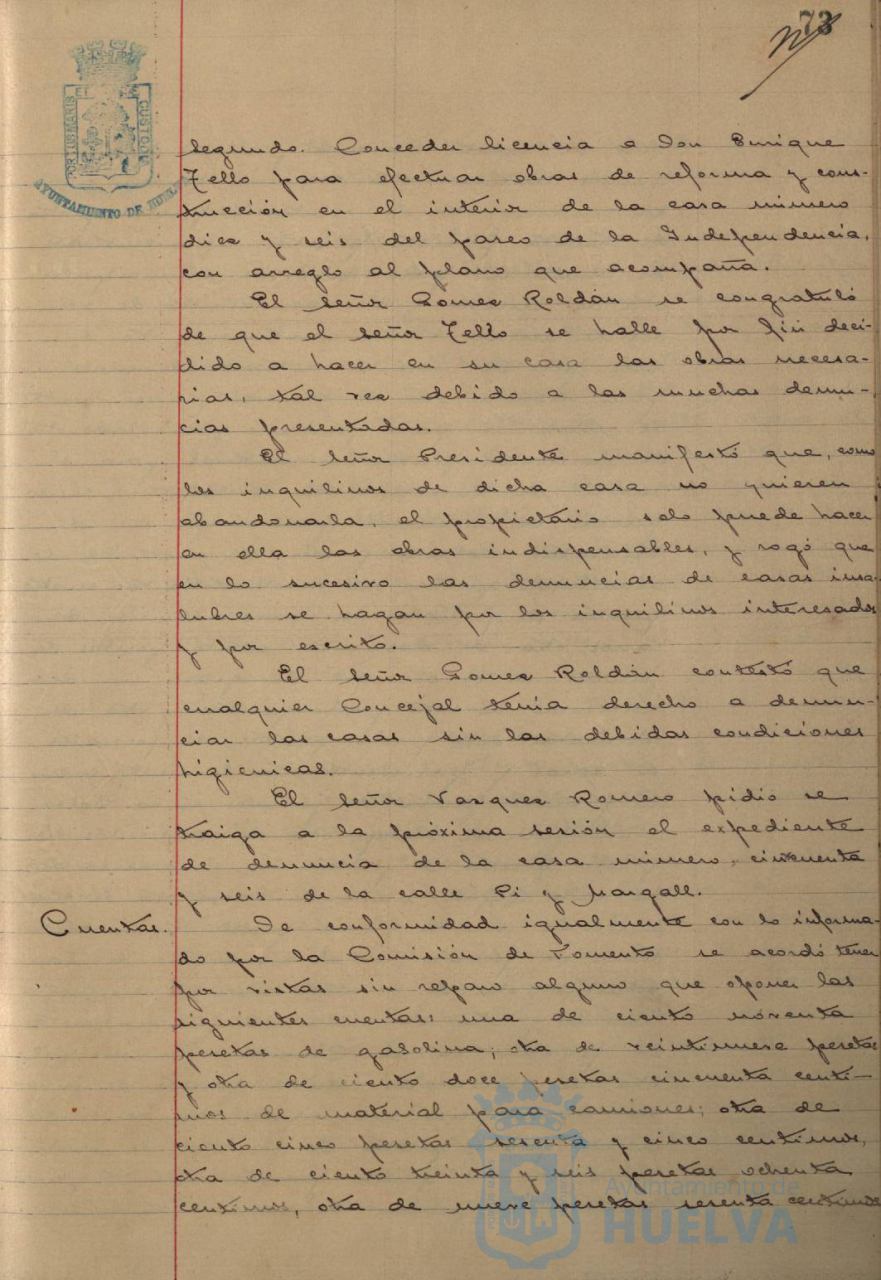 73
PORTUS MARIS ET CUSTODIA
AYUNTAMIENTO DE HUELVA
segundo. Conceder licencia a Don Enrique
Tello para efectuar obras de reforma y cons-
trucción en el interior de la casa número
diez y seis del paseo de la Independencia,
con arreglo al plano que acompaña.
El señor Gomez Roldán se congratuló
de que el señor Tello se halle por fin deci-
dido a hacer en su casa las obras necesa-
rias, tal vez debido a las muchas denun-
cias presentadas.
El señor Presidente manifestó que, como
los inquilinos de dicha casa no quieren
abandonarla, el propietario solo puede hacer
en ella las obras indispensables, y rogó que
en lo sucesivo las denuncias de casas insa-
lubres se hagan por los inquilinos interesados
y por escrito.
El señor Gomez Roldán contestó que
cualquier Concejal tenia derecho a denun-
ciar las casas sin las debidas condiciones
higienicas.
El señor Vazquez Romero pidio se
traiga a la próxima sesión el expediente
de denuncia de la casa número cincuenta
y seis de la calle Pi y Margall.
Cuentas.
De conformidad igualmente con lo informa-
do por la Comisión de Fomento se acordó tener
por vistas sin reparo alguno que oponer las
siguientes cuentas: una de ciento noventa
pesetas de gasolina; otra de veintinueve pesetas
y otra de ciento doce pesetas cincuenta centi-
mos de material para camiones; otra de
ciento cinco pesetas sesenta y cinco centimos,
otra de ciento treinta y seis pesetas ochenta
centimos, otra de nueve pesetas sesenta centimos
Ayuntamiento de
HUELVA